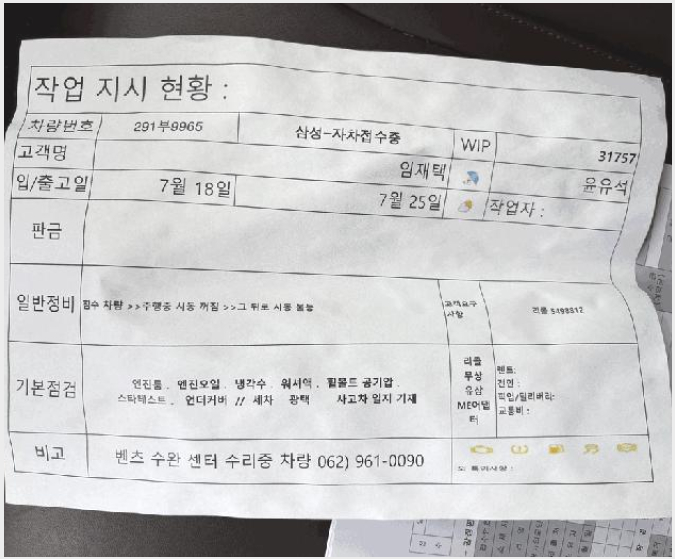 작업 지시 현황 :
차량번호 291부9965 삼성-자차접수중 WIP 31757
고객명 임재택 윤유석
입/출고일 7월 18일 7월 25일 작업자 :
판금
일반정비 침수 차량 >>주행중 시동 꺼짐 >>그 뒤로 시동 불능 고객요구 사항 리콜 5498512
기본점검
엔진룸 . 엔진오일 . 냉각수 . 워셔액 . 휠볼트 공기압 .
스타테스트 . 언더커버 // 세차 광택 사고차 일지 기재
리콜
무상
유상
ME어댑
터
렌트:
견인 :
픽업/딜리버리:
교통비 :
비고 벤츠 수완 센터 수리중 차량 062) 961-0090
특이사항 :